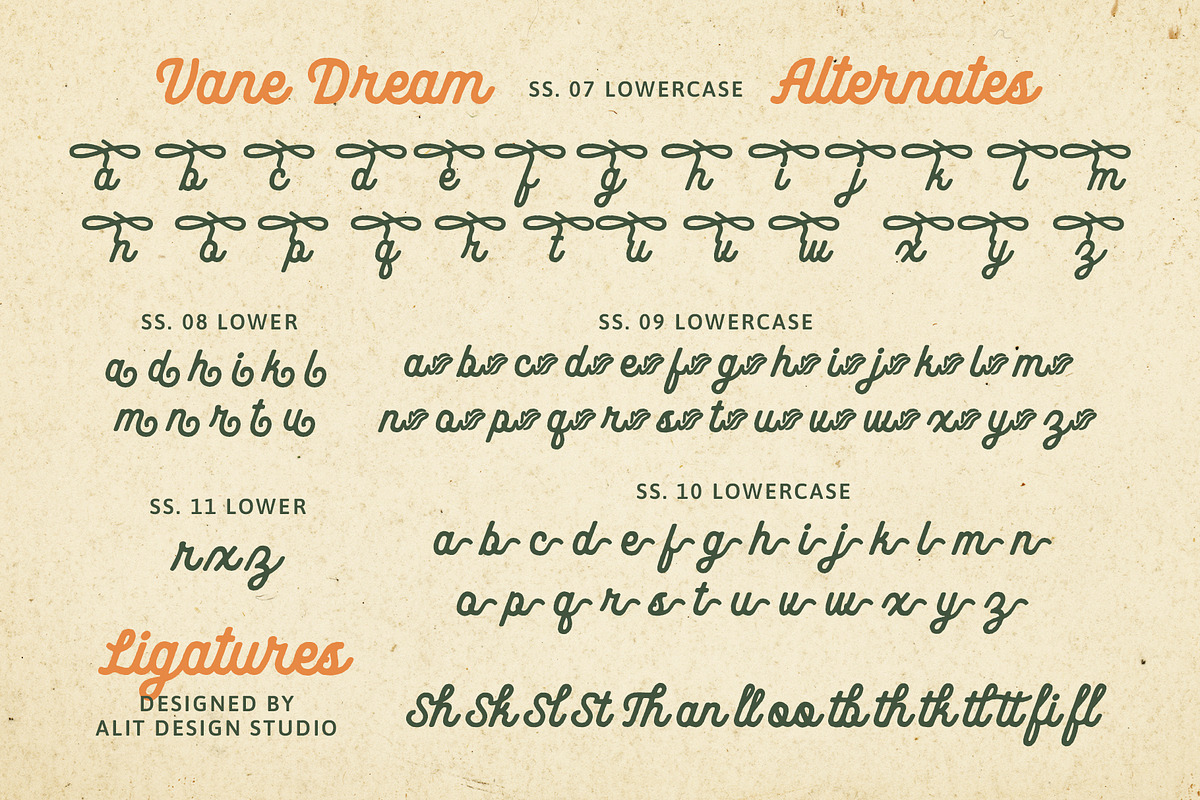 Vane Dream SS. 07 LOWERCASE Alternates
a b c d e f g h i j k l m
n o p q r t u u w x y z
SS. 08 LOWER
a d h i k l
m n r t u
SS. 09 LOWERCASE
a b c d e f g h i j k l m
n o p q r s t u u w x y z
SS. 11 LOWER
r x z
SS. 10 LOWERCASE
a b c d e f g h i j k l m n
o p q r s t u u w x y z
Ligatures
DESIGNED BY
ALIT DESIGN STUDIO
Sh Sk Sl St Th an ll oo tb th tk tl tt fi fl